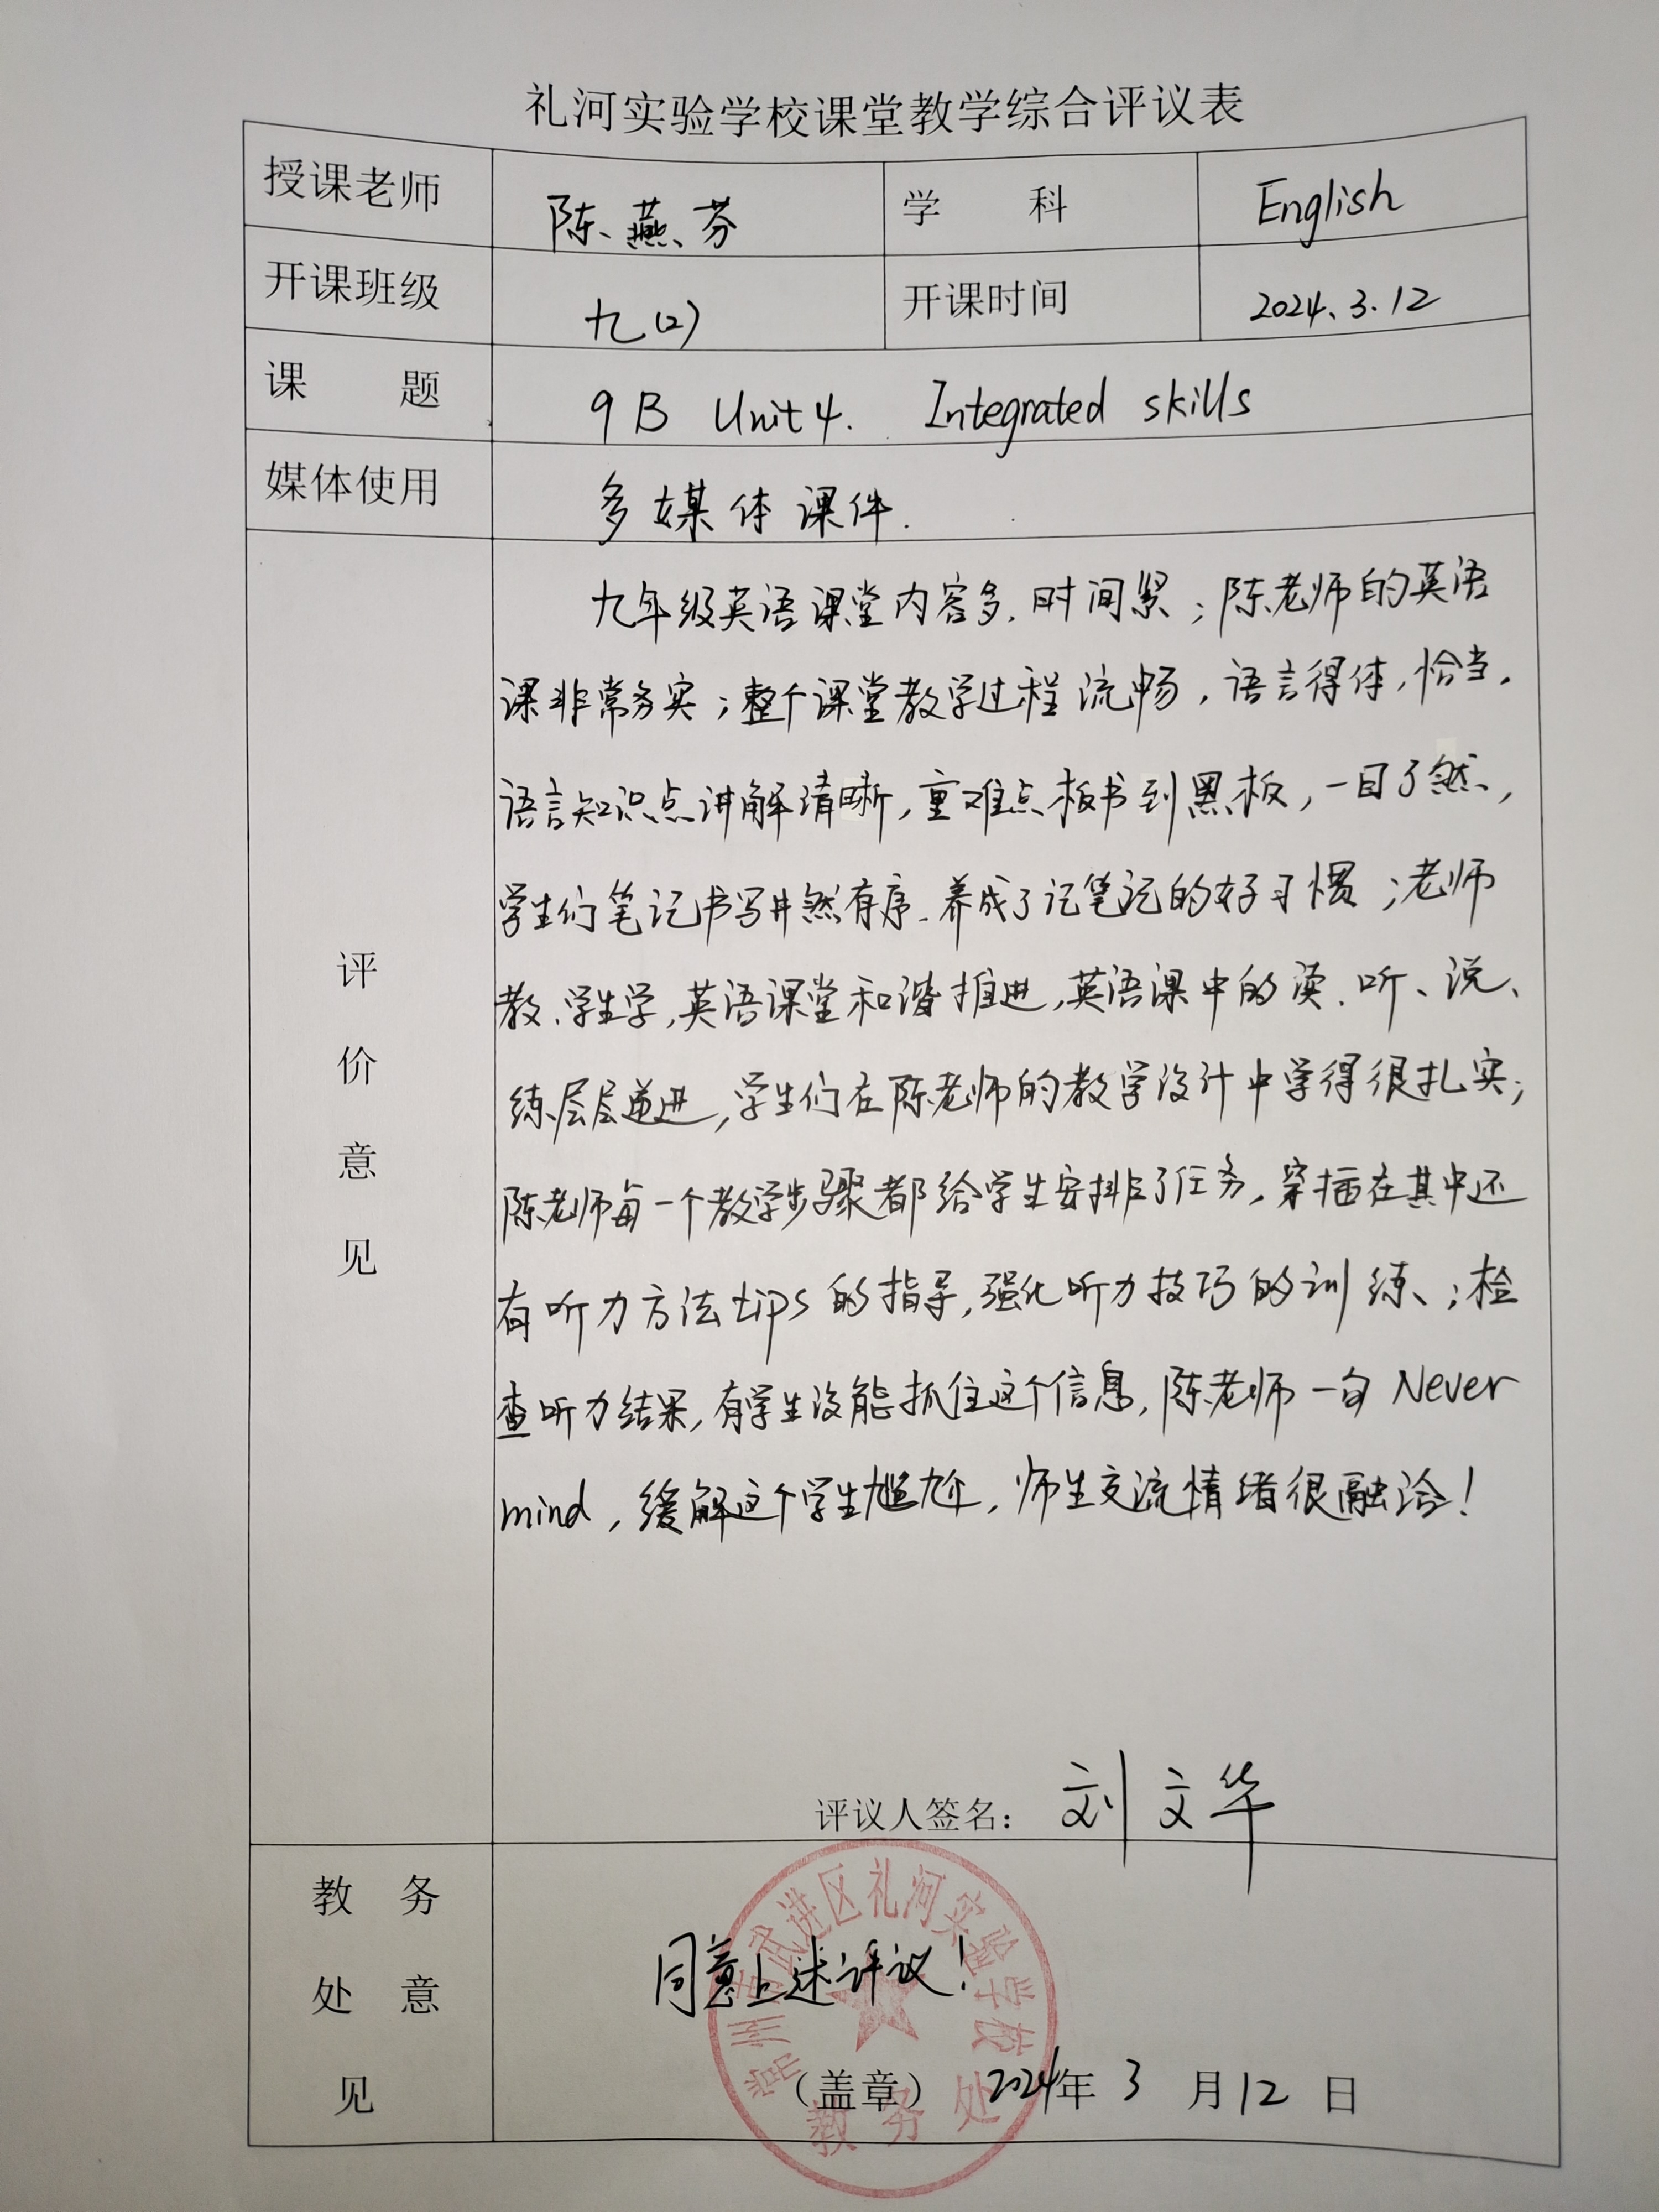 礼河实验学校课堂教学综合评议表
授课老师 陈燕芬 学 科 English
开课班级 九(2) 开课时间 2024.3.12
课 题 9B Unit4. Integrated skills
媒体使用 多媒体课件.
评价意见
九年级英语课堂内容多,时间紧;陈老师的英语
课非常务实;整个课堂教学过程流畅,语言得体,恰当.
语言知识点讲解清晰,重难点板书到黑板,一目了然,
学生们笔记书写井然有序、养成了记笔记的好习惯;老师
教、学生学,英语课堂和谐推进,英语课中的读、听、说、
练层层递进,学生们在陈老师的教学设计中学得很扎实;
陈老师每一个教学步骤都给学生安排了任务,穿插在其中还
有听力方法tips的指导,强化听力技巧的训练;检
查听力结果,有学生没能抓住这个信息,陈老师一句Never
mind,缓解这个学生尴尬,师生交流情绪很融洽!
评议人签名: 刘文华
教务处意见
同意上述评议!
常州市武进区礼河实验学校
教务处
(盖章) 2024年3月12日